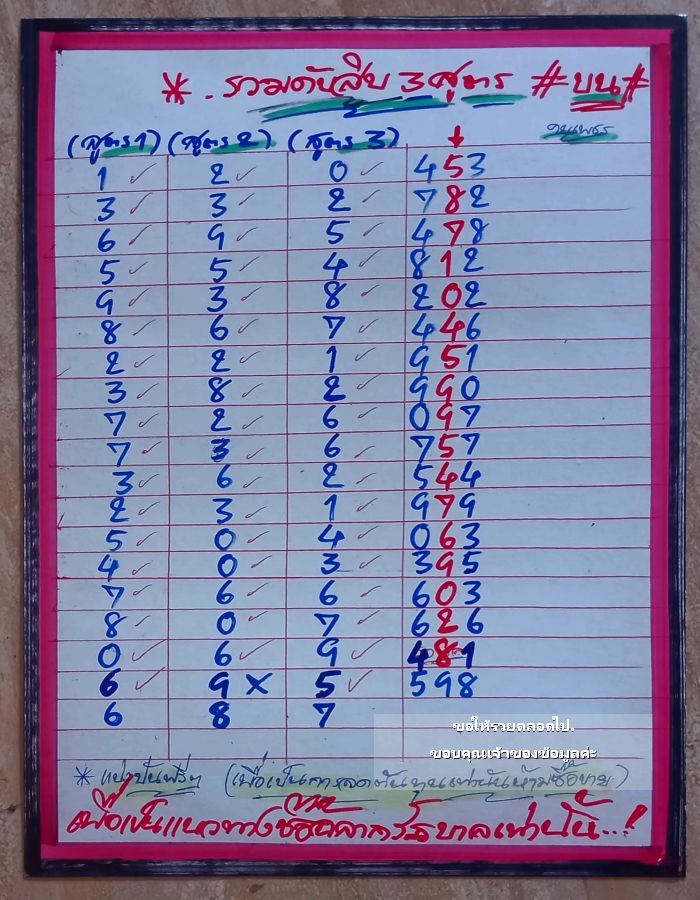 * . รวมดับสิบ 3 สูตร #บน#
(สูตร1) (สูตร2) (สูตร3) ↓
1 ✓ 2 ✓ 0 ✓ 453
3 ✓ 3 ✓ 2 ✓ 782
6 ✓ 9 ✓ 5 ✓ 478
5 ✓ 5 ✓ 4 ✓ 812
9 ✓ 3 ✓ 8 ✓ 202
8 ✓ 6 ✓ 7 ✓ 446
2 ✓ 2 ✓ 1 ✓ 951
3 ✓ 8 ✓ 2 ✓ 990
7 ✓ 2 ✓ 6 ✓ 097
7 ✓ 3 ✓ 6 ✓ 757
3 ✓ 6 ✓ 2 ✓ 544
2 ✓ 3 ✓ 1 ✓ 979
5 ✓ 0 ✓ 4 ✓ 063
4 ✓ 0 ✓ 3 ✓ 395
7 ✓ 6 ✓ 6 ✓ 603
8 ✓ 0 ✓ 7 ✓ 626
0 ✓ 6 ✓ 9 ✓ 481
6 ✓ 9 X 5 ✓ 598
6 8 7
ขอให้รวยตลอดไป.
ขอบคุณเจ้าของข้อมูลค่ะ
* แบ่งปันฟรีๆ (เพื่อเป็นการลดต้นทุนเท่านั้นห้ามซื้อขาย)
เพื่อเป็นแนวทางซื้อสลากรัฐบาลเท่านั้น...!